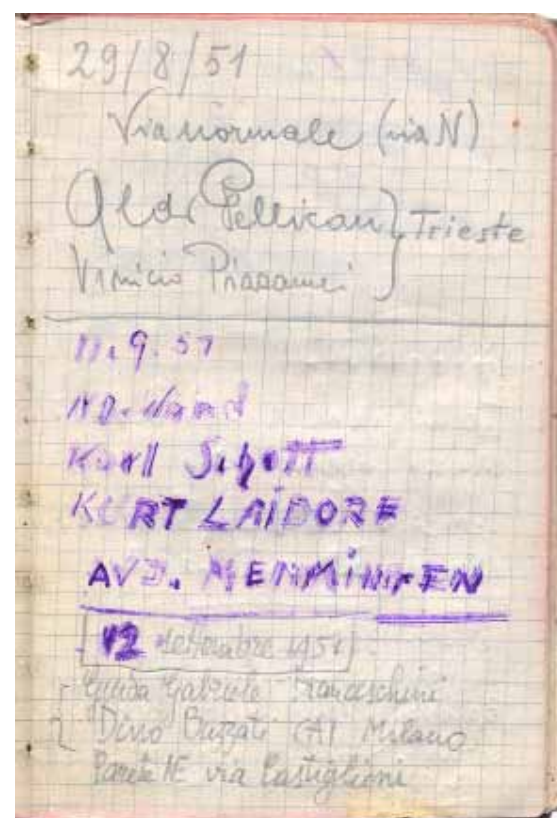 29/8/51
Via normale (via N)
Aldo Pellican } Trieste
Vinicio
11.9.51
NO. Wand
Karl Schott
KURT LAIDORF
AVD. MEMMINGEN
12 settembre 1951
Guida Gabriele Franceschini
Dino Buzzati CAI Milano
Parete NE via Castiglioni